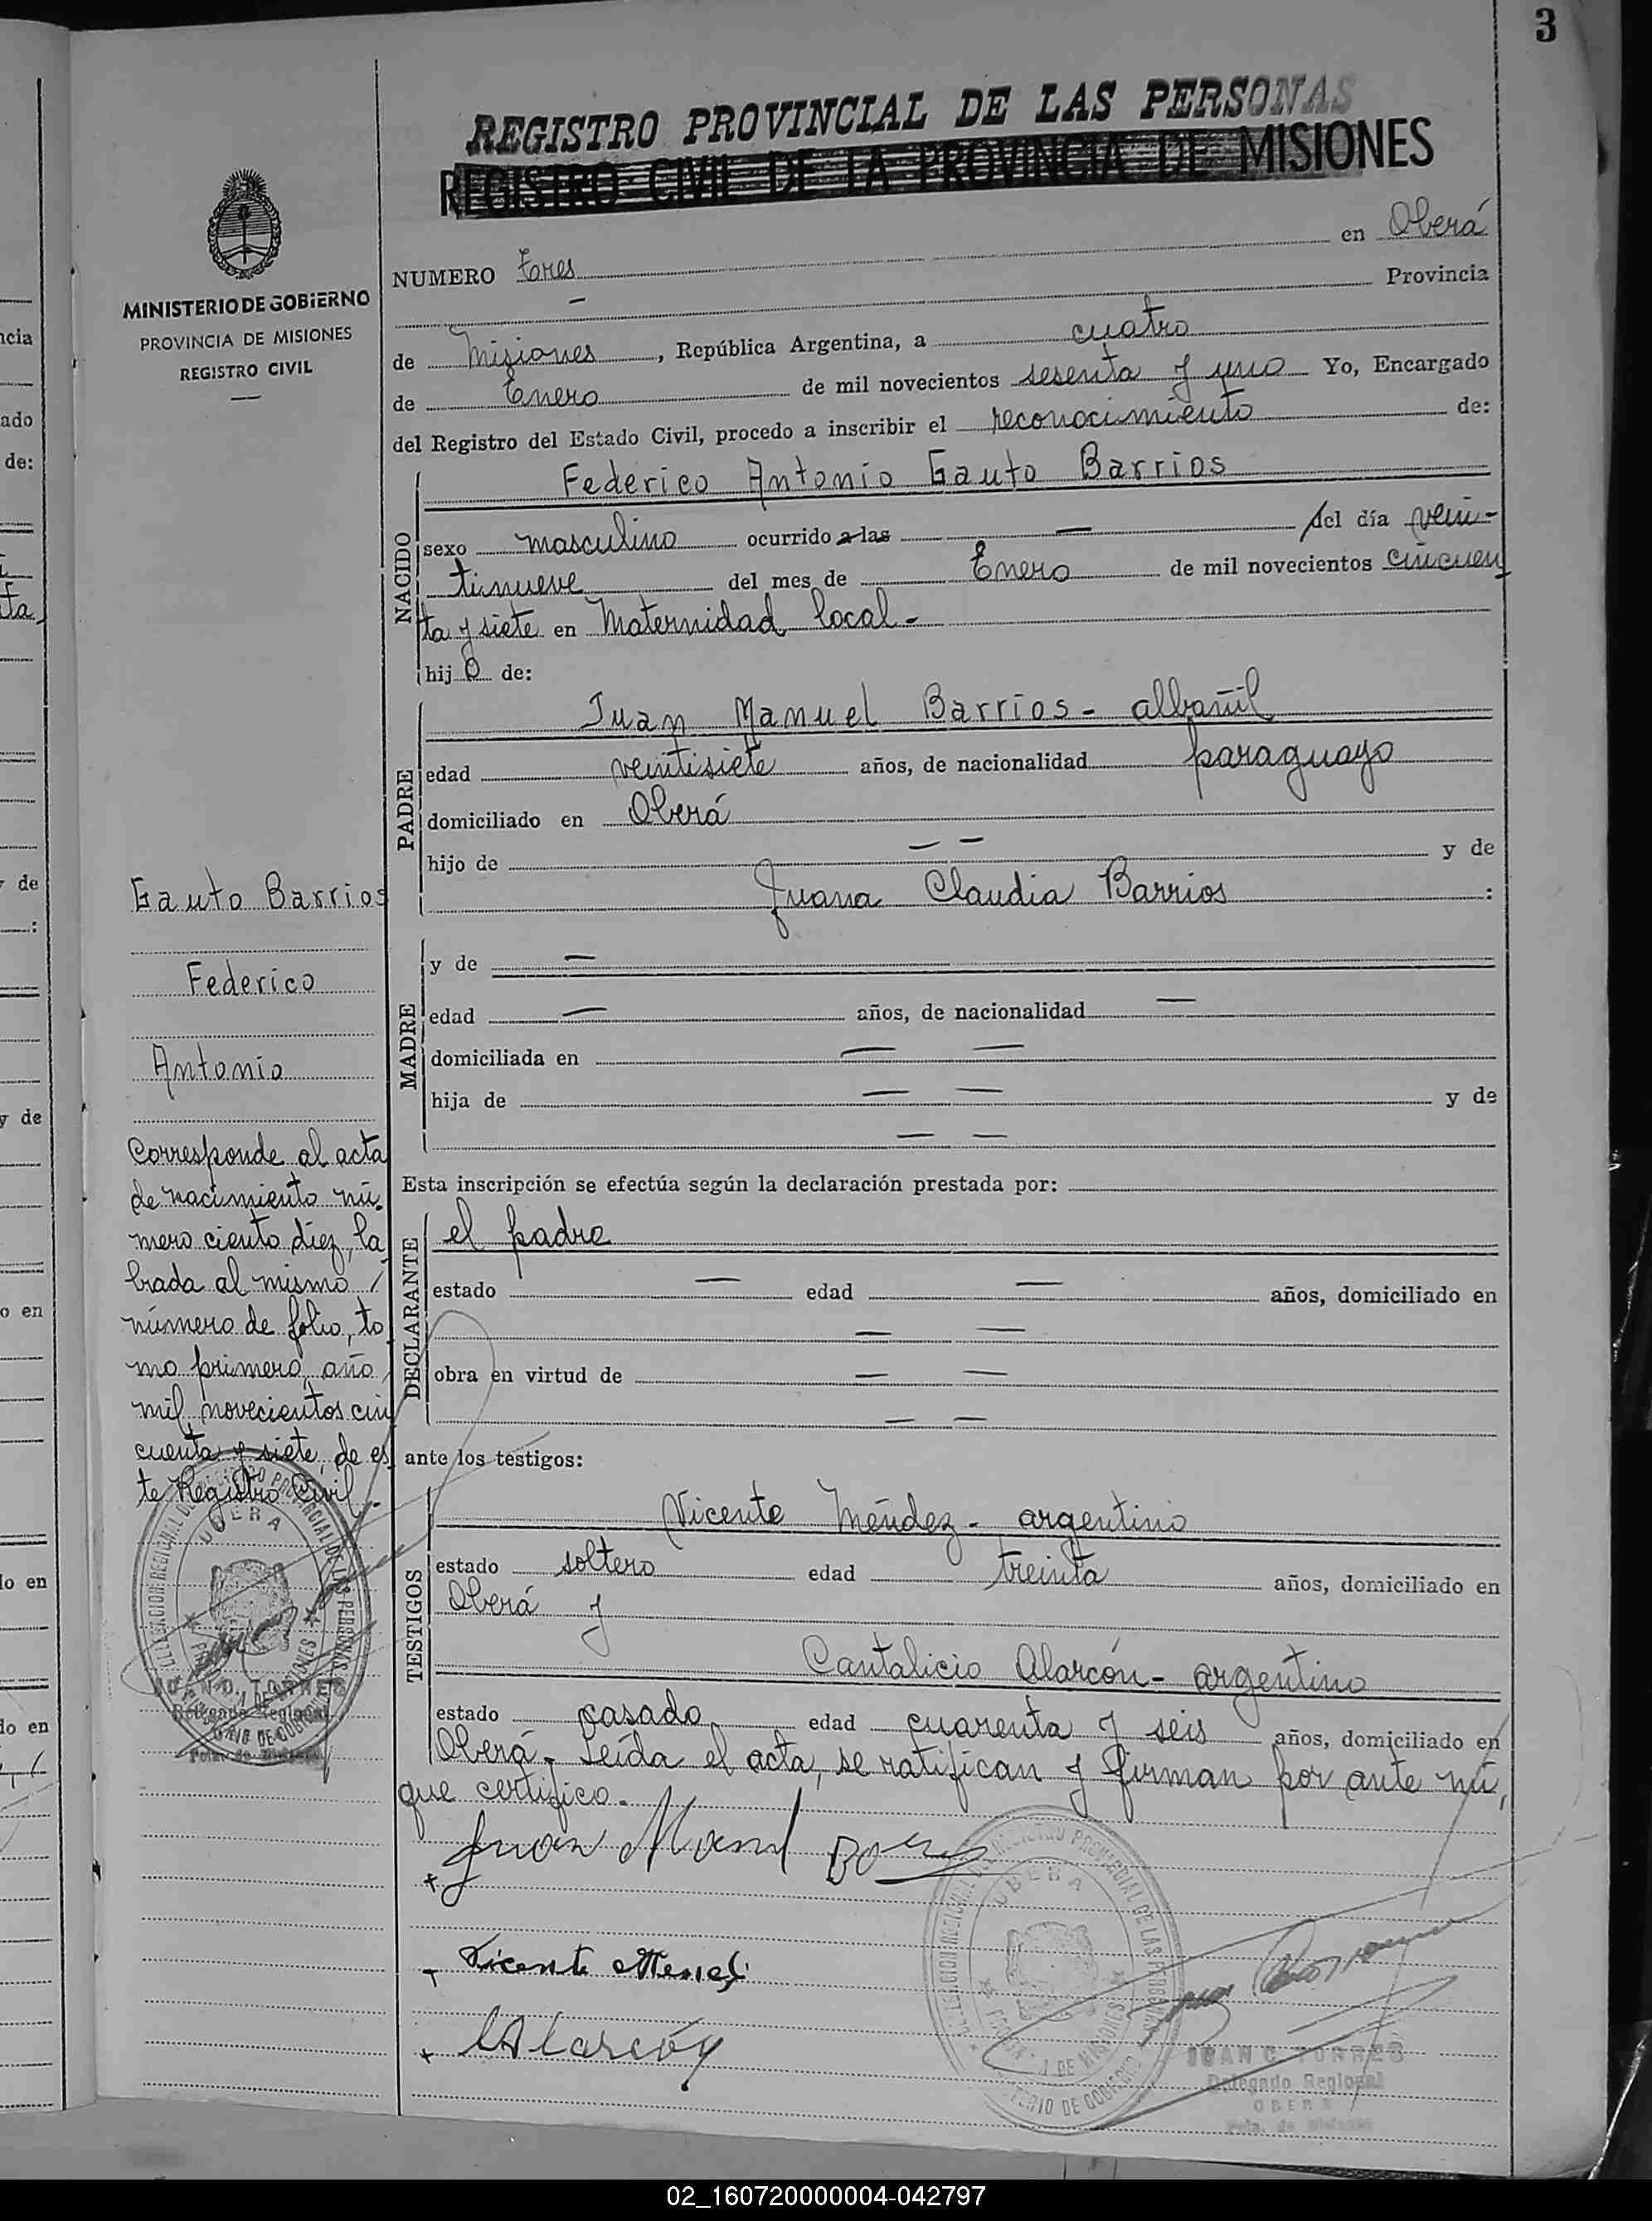 3
REGISTRO PROVINCIAL DE LAS PERSONAS
REGISTRO CIVIL DE LA PROVINCIA DE MISIONES
MINISTERIO DE GOBIERNO
PROVINCIA DE MISIONES
REGISTRO CIVIL
NUMERO Tres en Oberá
— Provincia
de Misiones, República Argentina, a cuatro
de Enero de mil novecientos sesenta y uno Yo, Encargado
del Registro del Estado Civil, procedo a inscribir el reconocimiento de:
NACIDO
Federico Antonio Gauto Barrios
sexo masculino ocurrido a las — del día vein-
tinueve del mes de Enero de mil novecientos cincuen
ta y siete en Maternidad local-
hijo de:
PADRE
Juan Manuel Barrios - albañil
edad veintisiete años, de nacionalidad paraguayo
domiciliado en Oberá
hijo de — — y de
Juana Claudia Barrios :
MADRE
y de —
edad — años, de nacionalidad —
domiciliada en — —
hija de — — y de
— —
Esta inscripción se efectúa según la declaración prestada por:
DECLARANTE
el padre
estado — edad — años, domiciliado en
— —
obra en virtud de — —
— —
ante los testigos:
TESTIGOS
Vicente Méndez - argentino
estado soltero edad treinta años, domiciliado en
Oberá y
Cantalicio Alarcón - argentino
estado casado edad cuarenta y seis años, domiciliado en
Oberá - Leída el acta, se ratifican y firman por ante mí,
que certifico.-
Juan Manuel
Vicente Mendez
CAlarcón
Gauto Barrios
Federico
Antonio
Corresponde al acta
de nacimiento nú-
mero ciento diez, la
brada al mismo
número de folio, to
mo primero, año
mil novecientos cin
cuenta y siete, de es
te Registro Civil.-
OBERA
JUAN C. TORRES
Delegado Regional
OBERA
Pcia. de Misiones
02_160720000004-042797